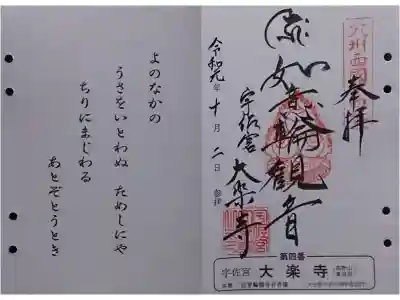 よのなかの
うさをいとわぬ ためしにや
ちりにまじわる
あとぞとうとき
奉拝
如意輪観音
宇佐宮
大楽寺
令和元年十月二日 参拝
第四番
宇佐宮 大楽寺